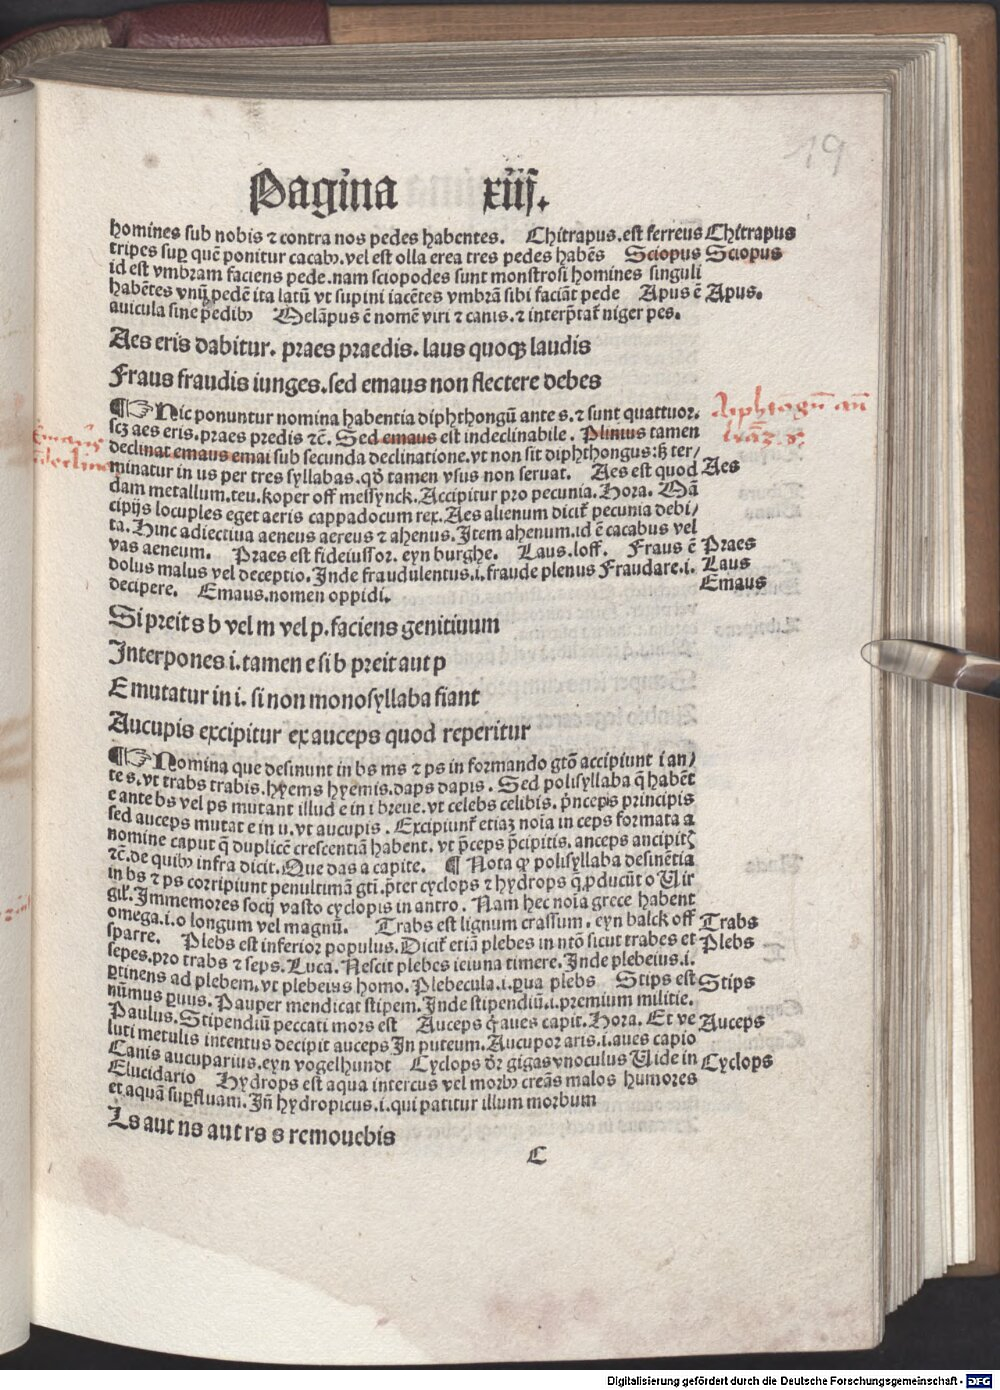 19
Pagina xiij.
homines sub nobis ⁊ contra nos pedes habentes. Chitrapus.est ferreus Chitrapus
tripes suꝑ quē ponitur cacabꝰ.vel est olla erea tres pedes habēs Sciopus Sciopus
id est vmbram faciens pede.nam sciopodes sunt monstrosi homines singuli
habētes vnū pedē ita latū vt supini iacētes vmbrā sibi faciāt pede Apus ē Apus.
auicula sine pedibꝰ Melāpus ē nomē viri ⁊ canis.⁊ interp̄tat᷑ niger pes.
Aes eris dabitur. praes praedis. laus quoqꝫ laudis
Fraus fraudis iunges.sed emaus non flectere debes
¶☞Hic ponuntur nomina habentia diphthongū ante s.⁊ sunt quattuor.
scꝫ aes eris.praes predis ⁊c̄. Sed emaus est indeclinabile. Plinius tamen
declinat emaus emai sub secunda declinatione.vt non sit diphthongus:sꝫ ter/
minatur in us per tres syllabas.qd̄ tamen vsus non seruat. Aes est quod Aes
dam metallum.teu.koper off messynck.Accipitur pro pecunia.Hora. Mā
cipijs locuples eget aeris cappadocum rex.Aes alienum dicit᷑ pecunia debi/
ta.Hinc adiectiua aeneus aereus ⁊ ahenus.Item ahenum.id ē cacabus vel
vas aeneum. Praes est fideiussor.eyn burghe. Laus.loff. Fraus ē Praes
dolus malus vel deceptio.Inde fraudulentus.i.fraude plenus Fraudare.i. Laus
decipere. Emaus.nomen oppidi. Emaus
Si preit s b vel m vel p.faciens genitiuum
Interpones i.tamen e si b preit aut p
E mutatur in i. si non monosyllaba fiant
Aucupis excipitur ex auceps quod reperitur
¶☞Nomina que desinunt in bs ms ⁊ ps in formando gtō accipiunt i an/
te s.vt trabs trabis.hyems hyemis.daps dapis. Sed polisyllaba q̄ habēt
e ante bs vel ps mutant illud e in i breue.vt celebs celibis.p̄nceps principis
sed auceps mutat e in u.vt aucupis. Excipiunt᷑ etiaꝫ noīa in ceps formata a
nomine caput q̄ duplicē crescentiā habent. vt p̄ceps p̄cipitis.anceps ancipitꝭ
⁊c̄.de quibꝰ infra dicit.Que das a capite. ¶ Nota ꝙ polisyllaba desinētia
in bs ⁊ ps corripiunt penultimā gti.p̄ter cyclops ⁊ hydrops q̄ ꝓducūt o Uir
gil.Immemores socij vasto cyclopis in antro. Nam hec noīa grece habent
omega.i.o longum vel magnū. Trabs est lignum crassum.eyn balck off Trabs
sparre. Plebs est inferior populus.Dicit᷑ etiā plebes in ntō sicut trabes et Plebs
sepes.pro trabs ⁊ seps.Luca.Nescit plebes ieiuna timere.Inde plebeius.i.
ꝑtinens ad plebem.vt plebeius homo.Plebecula.i.ꝑua plebs Stips est Stips
nūmus ꝑuus.Pauper mendicat stipem.Inde stipendiū.i.premium militie.
Paulus.Stipendiū peccati mors est Auceps q̇ aues capit.Hora. Et ve Auceps
luti metulis intentus decipit auceps In puteum.Aucupor aris.i.aues capio
Canis aucuparius.eyn vogelhundt Cyclops dr̄ gigas vnoculus Uide in Cyclops
Elucidario Hydrops est aqua intercus vel morbꝰ creās malos humores
et aquā suꝑfluam.Iñ hydropicus.i.qui patitur illum morbum
Ls aut ns aut rs s remouebis
C
Digitalisierung gefördert durch die Deutsche Forschungsgemeinschaft - DFG